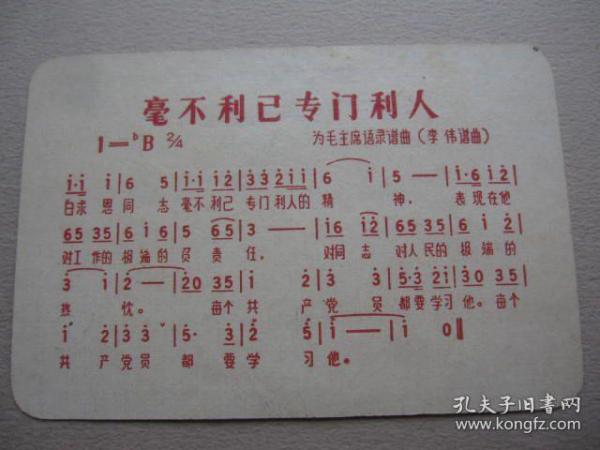 毫不利己专门利人
1=♭B 2/4 为毛主席语录谱曲（李伟谱曲）
i·i i|6 5|i·i i2|3 3 2 i i|6 i|5 —|i·6 i2|
白求恩同志毫不利己专门利人的精神，表现在他
65 35|6 i 6|5 65|3 —— i6 i2|65 35|6 i 2|
对工作的极端的负责任，对同志对人民的极端的
3 i|2 —|20 35|i 2|3 3|5·3 2i|30 35|
热忱。每个共产党员都要学习他。每个
i 2|3 3|5· 3|2 5|i —— i 0‖
共产党员都要学习他。
孔夫子旧书网
www.kongfz.com